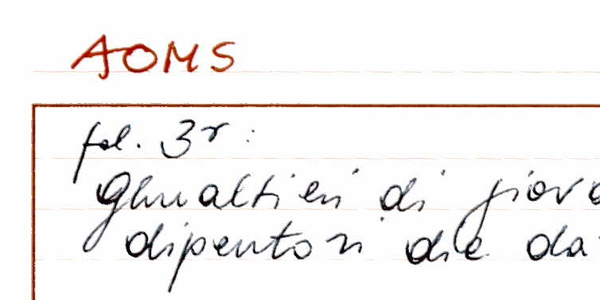 AOMS
fol. 3r:
Ghualtieri di giova
dipentori die da